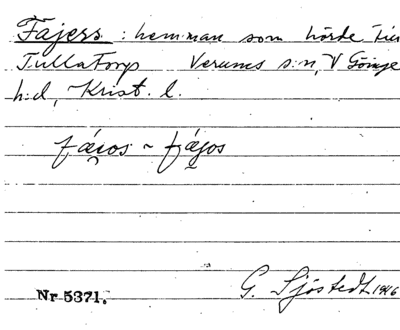 Fajers : hemman som hörde till
Tullatorp Verums s:n, V Göinge
h:d, Krist. l.
fáɪ̯os ~ fájos
Nr 5371.
G. Sjöstedt 1946